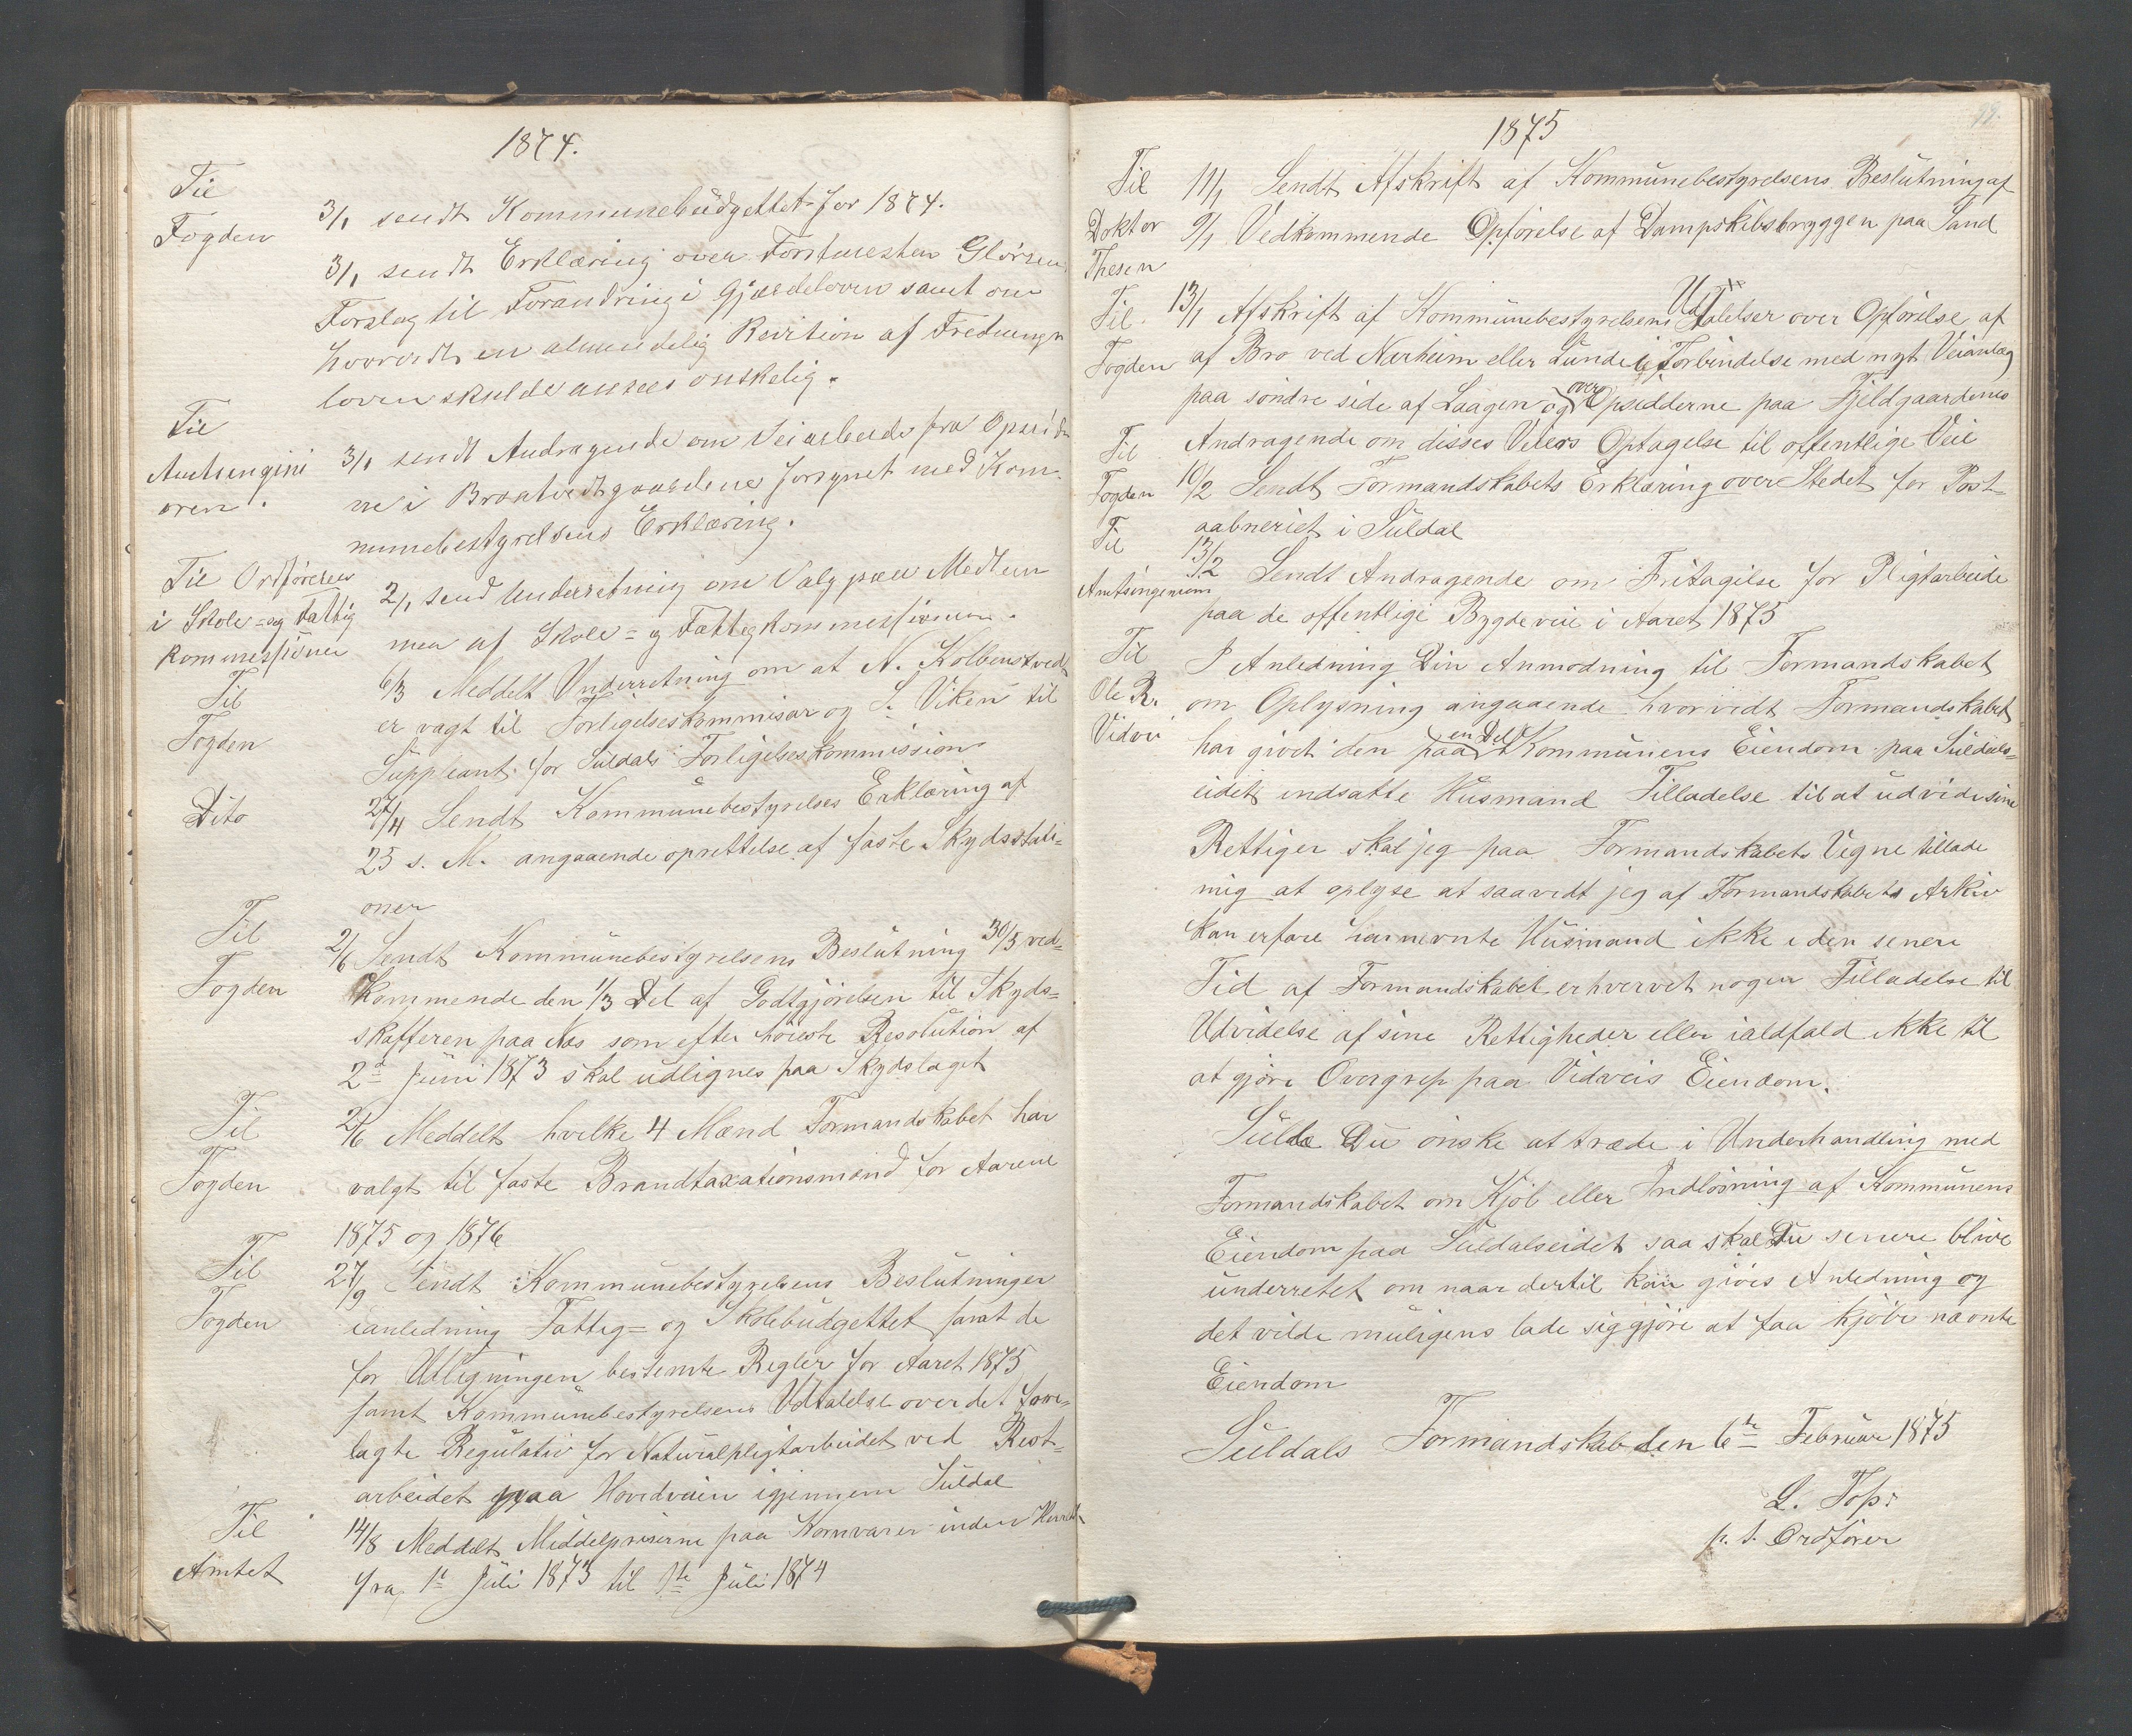 1874.
Til
Fogden
3/1 sendt Kommunebudgettet for 1874.
3/1 sendt Erklæring over Forstmesten Glörsen
Forslag til Forandring i Gjærdeloven samt om
hvorvidt en almindelig Revition af Frednings
loven skulde ansees onskelig.
Til
Amtsingini
oren.
3/1 sendt Andragende om Veiarbeide fra Opsid
ne i Bratvedtgaardene forsynet med Kom-
munebestyrelsens Erklæring.
Til Ordförerne
i Skole= og Fattig
kommissionen
2/1 send Underretning om Valg paa Medlem
mer af Skole= og Fattigkommissionen.
Til
Fogden
6/3 Meddelt Underretning om at N. Kolbenstvedt
er vagt til Forligelseskommisær og S. Viken til
Suppleant for Suldals Forligelseskommission
Dito
27/4 Sendt Kommunebestyrelses Erklæring af
25 s. M. angaaende oprettelse af faste Skydsstati=
oner
Til
Fogden
2/6 Sendt Kommunebestyrelsens Beslutning 30/5 ved=
kommende den 1/3 Del af Godtgjörelsen til Skyds=
skafferen paa Næs som efter höieste Resolution af
2d Juni 1873 skal udlignes paa Skydslaget
Til
Fogden
2/6 Meddelt hvilke 4 Mænd Formandskabet har
valgt til faste Brandtaxationsmænd for Aarene
1875 og 1876
Til
Fogden
27/9 Sendt Kommunebestyrelsens Beslutninger
ianledning Fattig= og Skolebudgettet samt de
for Udligningen bestemte Regler for Aaret 1875
samt Kommunebestyrelsens Udtalelse over det fore-
lagte Regulativ for Naturalpligtarbeidet ved Rest-
arbeidet paa Hovedveien igjennem Suldal
Til
Amtet
14/8 Meddelt Middelpriserne paa Kornvarer inden Herredt
fra 1te Juli 1873 til 1te Juli 1874
99.
1875
Til
Doktor
Thesen
11/1 Sendt Afskrift af Kommunebestyrelsens Beslutning af
9/1 Vedkommende Opförelse af Dampskibsbryggen paa Sand
Til
Fogden
13/1 Afskrift af Kommunebestyrelsens Udtalelser over Opförelse af
af Bro ved Nærheim eller Lunde i Forbindelse med nyt Veianlæg
paa söndre side af Laagen og over Opsidderne paa Fjeldgaardenes
Andragende om disses Veiers Optagelse til offentlige Veie
Til
Fogden
10/2 Sendt Formandskabets Erklæring over Stedet for Post-
aabneriet i Suldal
Til
Amtsingeniøren
13/2 Sendt Andragende om Fritagelse for Pligtarbeide
paa de offentlige Bygdeveie i Aaret 1875
Til
Ole R.
Vidvei
I Anledning Din Anmodning til Formandskabet
om Oplysning angaaende hvorvidt Formandskabet
har givet den paa en Del Kommunens Eiendom paa Suldals=
eidet indsatte Husmand Tilladelse til at udvide sine
Rettiger skal jeg paa Formandskabets Vegne tillade
mig at oplyse at saavidt jeg af Formandskabets Arkiv
kan erfare har nevnte Husmand ikke i den senere
Tid af Formandskabet erhvervet nogen Tilladelse til
Udvidelse af sine Rettigheder eller ialdfald ikke til
at gjöre Overgrep paa Vidveis Eiendom.
Sulde Du önske at træde i Underhandling med
Formandskabet om Kjöb eller Indlösning af Kommunens
Eiendom paa Suldalseidet saa skal Du senere blive
underrettet om naar dertil kan gives Anledning og
det vilde muligens lade sig gjöre at faa kjöbe nævnte
Eiendom
Suldals Formandskab den 6te Februar 1875
L. Tops.
p. t. Ordförer